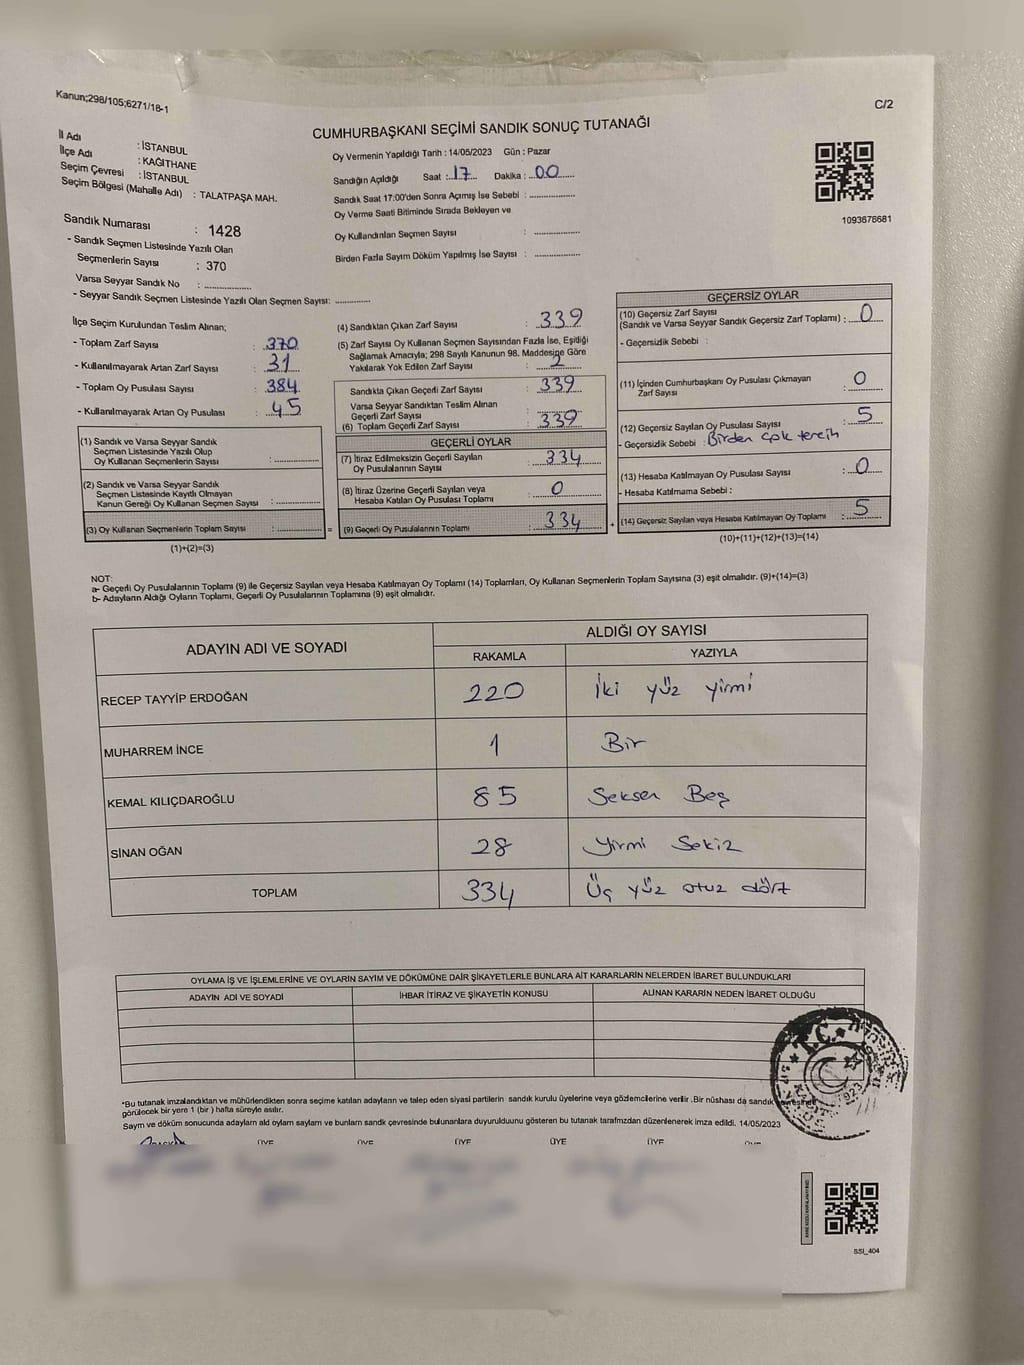 Kanun;298/105;6271/18-1
C/2
CUMHURBAŞKANI SEÇİMİ SANDIK SONUÇ TUTANAĞI
İl Adı : İSTANBUL
İlçe Adı : KAĞITHANE
Seçim Çevresi : İSTANBUL
Seçim Bölgesi (Mahalle Adı) : TALATPAŞA MAH.
Sandık Numarası : 1428
- Sandık Seçmen Listesinde Yazılı Olan
Seçmenlerin Sayısı : 370
Varsa Seyyar Sandık No : ..............
- Seyyar Sandık Seçmen Listesinde Yazılı Olan Seçmen Sayısı: ..........
Oy Vermenin Yapıldığı Tarih : 14/05/2023 Gün : Pazar
Sandığın Açıldığı Saat : 17 Dakika : 00
Sandık Saat 17:00'den Sonra Açmış İse Sebebi : ..............
Oy Verme Saati Bitiminde Sırada Bekleyen ve
Oy Kullandırılan Seçmen Sayısı : ..............
Birden Fazla Sayım Döküm Yapılmış İse Sayısı : ..............
1093676681
İlçe Seçim Kurulundan Teslim Alınan;
- Toplam Zarf Sayısı : 370
- Kullanılmayarak Artan Zarf Sayısı : 31
- Toplam Oy Pusulası Sayısı : 384
- Kullanılmayarak Artan Oy Pusulası : 45
(1) Sandık ve Varsa Seyyar Sandık
Seçmen Listesinde Yazılı Olup
Oy Kullanan Seçmenlerin Sayısı : ..............
(2) Sandık ve Varsa Seyyar Sandık
Seçmen Listesinde Kayıtlı Olmayan
Kanun Gereği Oy Kullanan Seçmen Sayısı : ..............
(3) Oy Kullanan Seçmenlerin Toplam Sayısı : .............. =
(1)+(2)=(3)
(4) Sandıktan Çıkan Zarf Sayısı : 339
(5) Zarf Sayısı Oy Kullanan Seçmen Sayısından Fazla İse, Eşitliği
Sağlamak Amacıyla; 298 Sayılı Kanunun 98. Maddesine Göre
Yakılarak Yok Edilen Zarf Sayısı : 2
Sandıkta Çıkan Geçerli Zarf Sayısı : 339
Varsa Seyyar Sandıktan Teslim Alınan
Geçerli Zarf Sayısı : ..............
(6) Toplam Geçerli Zarf Sayısı : 339
GEÇERLİ OYLAR
(7) İtiraz Edilmeksizin Geçerli Sayılan
Oy Pusulalarının Sayısı : 334
(8) İtiraz Üzerine Geçerli Sayılan veya
Hesaba Katılan Oy Pusulası Toplamı : 0
(9) Geçerli Oy Pusulalarının Toplamı : 334 +
GEÇERSİZ OYLAR
(10) Geçersiz Zarf Sayısı
(Sandık ve Varsa Seyyar Sandık Geçersiz Zarf Toplamı) : 0
- Geçersizlik Sebebi :
(11) İçinden Cumhurbaşkanı Oy Pusulası Çıkmayan
Zarf Sayısı : 0
(12) Geçersiz Sayılan Oy Pusulası Sayısı : 5
- Geçersizlik Sebebi : Birden çok tercih
(13) Hesaba Katılmayan Oy Pusulası Sayısı : 0
- Hesaba Katılmama Sebebi :
(14) Geçersiz Sayılan veya Hesaba Katılmayan Oy Toplamı : 5
(10)+(11)+(12)+(13)=(14)
NOT:
a- Geçerli Oy Pusulalarının Toplamı (9) ile Geçersiz Sayılan veya Hesaba Katılmayan Oy Toplamı (14) Toplamları, Oy Kullanan Seçmenlerin Toplam Sayısına (3) eşit olmalıdır. (9)+(14)=(3)
b- Adayların Aldığı Oyların Toplamı, Geçerli Oy Pusulalarının Toplamına (9) eşit olmalıdır.
ADAYIN ADI VE SOYADI ALDIĞI OY SAYISI
RAKAMLA YAZIYLA
RECEP TAYYİP ERDOĞAN 220 İki yüz yirmi
MUHARREM İNCE 1 Bir
KEMAL KILIÇDAROĞLU 85 Seksen Beş
SİNAN OĞAN 28 Yirmi Sekiz
TOPLAM 334 Üç yüz otuz dört
OYLAMA İŞ VE İŞLEMLERİNE VE OYLARIN SAYIM VE DÖKÜMÜNE DAİR ŞİKAYETLERLE BUNLARA AİT KARARLARIN NELERDEN İBARET BULUNDUKLARI
ADAYIN ADI VE SOYADI İHBAR İTİRAZ VE ŞİKAYETİN KONUSU ALINAN KARARIN NEDEN İBARET OLDUĞU
T.C.
*Bu tutanak imzalandıktan ve mühürlendikten sonra seçime katılan adayların ve talep eden siyasi partilerin sandık kurulu üyelerine veya gözlemcilerine verilir .Bir nüshası da sandık çevresinde
görülecek bir yere 1 (bir ) hafta süreyle asılır.
Sayım ve döküm sonucunda adayların ald oyların sayların bunların sandk çevresinde bulunanlara duyurulduunu gösteren bu tutanak tarafmzdan düzenlenerek imza edildi. 14/05/2023
ÜYE ÜYE ÜYE ÜYE ÜYE ÜYE
SSI_404